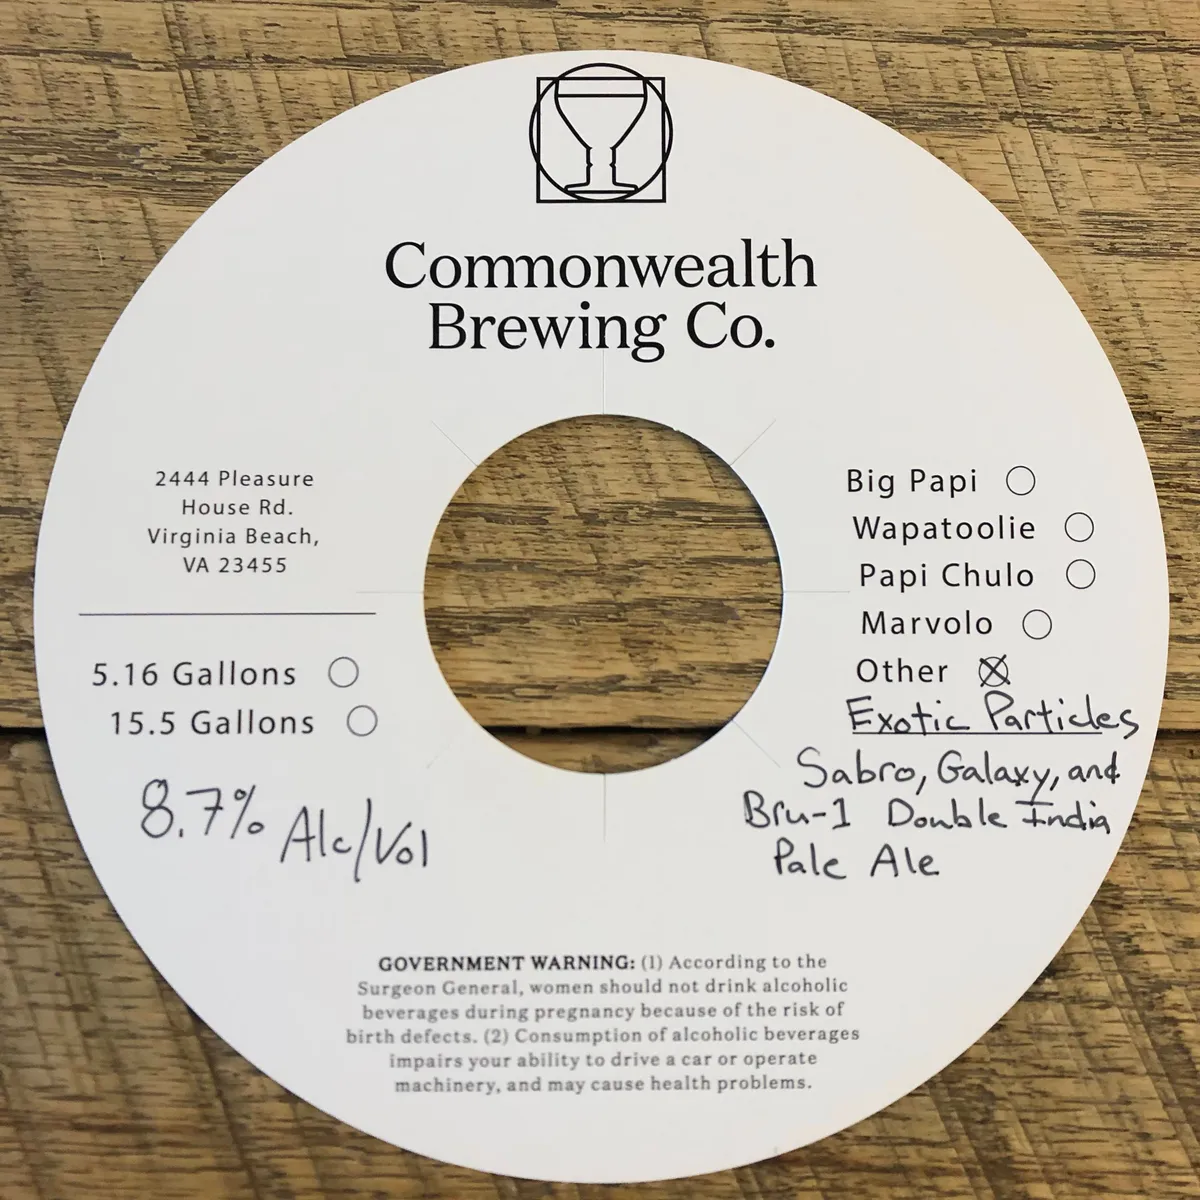 Commonwealth
Brewing Co.
2444 Pleasure
House Rd.
Virginia Beach,
VA 23455
5.16 Gallons
15.5 Gallons
8.7% Alc/Vol
Big Papi
Wapatoolie
Papi Chulo
Marvolo
Other
Exotic Particles
Sabro, Galaxy, and
Bru-1 Double India
Pale Ale
GOVERNMENT WARNING: (1) According to the
Surgeon General, women should not drink alcoholic
beverages during pregnancy because of the risk of
birth defects. (2) Consumption of alcoholic beverages
impairs your ability to drive a car or operate
machinery, and may cause health problems.